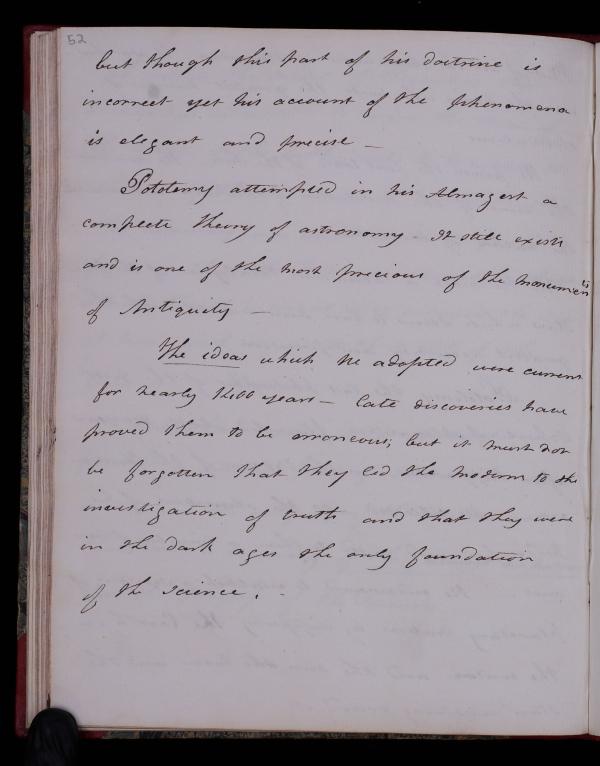 52
but though this part of his doctrine is
incorrect yet his account of the phenomena
is elegant and precise –
Pototemy attempted in his Almagest a
complete theory of astronomy – It still exists
and is one of the most precious of the monuments
of Antiquity –
The ideas which he adopted were current
for nearly 1400 years – late discoveries have
proved them to be erroneous; but it must not
be forgotten that they led the moderns to the
investigation of truth and that they were
in the dark ages the only foundation
of the science . –